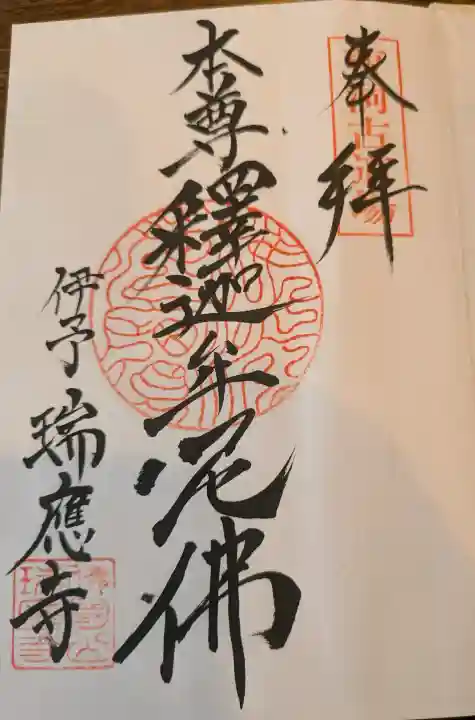 奉拝
本尊釋迦牟尼佛
伊予瑞應寺